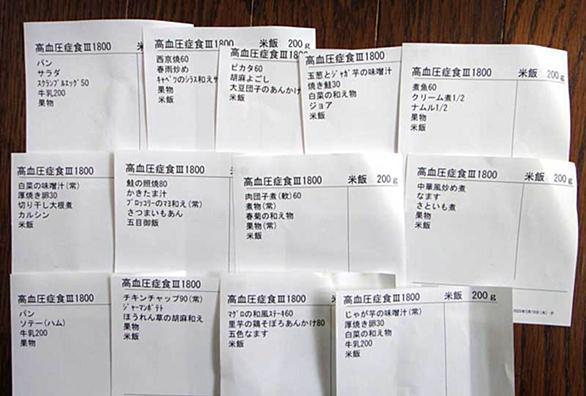 高血圧症食Ⅲ1800
パン
サラダ
スクランブルエッグ50
牛乳200
果物
西京焼60
春雨炒め
キャベツのシラス和え
果物
米飯
米飯 200g
ピカタ60
胡麻よごし
大豆団子のあんかけ
米飯
玉葱とジャガ芋の味噌汁
焼き鮭30
白菜の和え物
ジョア
米飯
高血圧症食Ⅲ1800 米飯 200g
煮魚60
クリーム煮1/2
ナムル1/2
果物
米飯
高血圧症食Ⅲ1800
白菜の味噌汁(常)
厚焼き卵30
切り干し大根煮
カルシン
米飯
高血圧症食Ⅲ1800
鮭の照焼80
かきたま汁
ブロッコリーのマヨ和え(常)
さつまいもあん
五目御飯
高血圧症食Ⅲ1800 米飯 200g
肉団子煮(軟)60
煮物(常)
春菊の和え物
果物
米飯
高血圧症食Ⅲ1800 米飯 200g
中華風炒め煮
なます
さといも煮
果物
米飯
高血圧症食Ⅲ1800
パン
ソテー(ハム)
牛乳200
果物
高血圧症食Ⅲ1800
チキンチャップ90(常)
ジャーマンポテト
ほうれん草の胡麻和え
果物
米飯
高血圧症食Ⅲ1800
マグロの和風ステーキ60
里芋の鶏そぼろあんかけ80
五色なます
米飯
高血圧症食Ⅲ1800 米飯 200g
じゃが芋の味噌汁(常)
厚焼き卵30
白菜の和え物
牛乳200
米飯